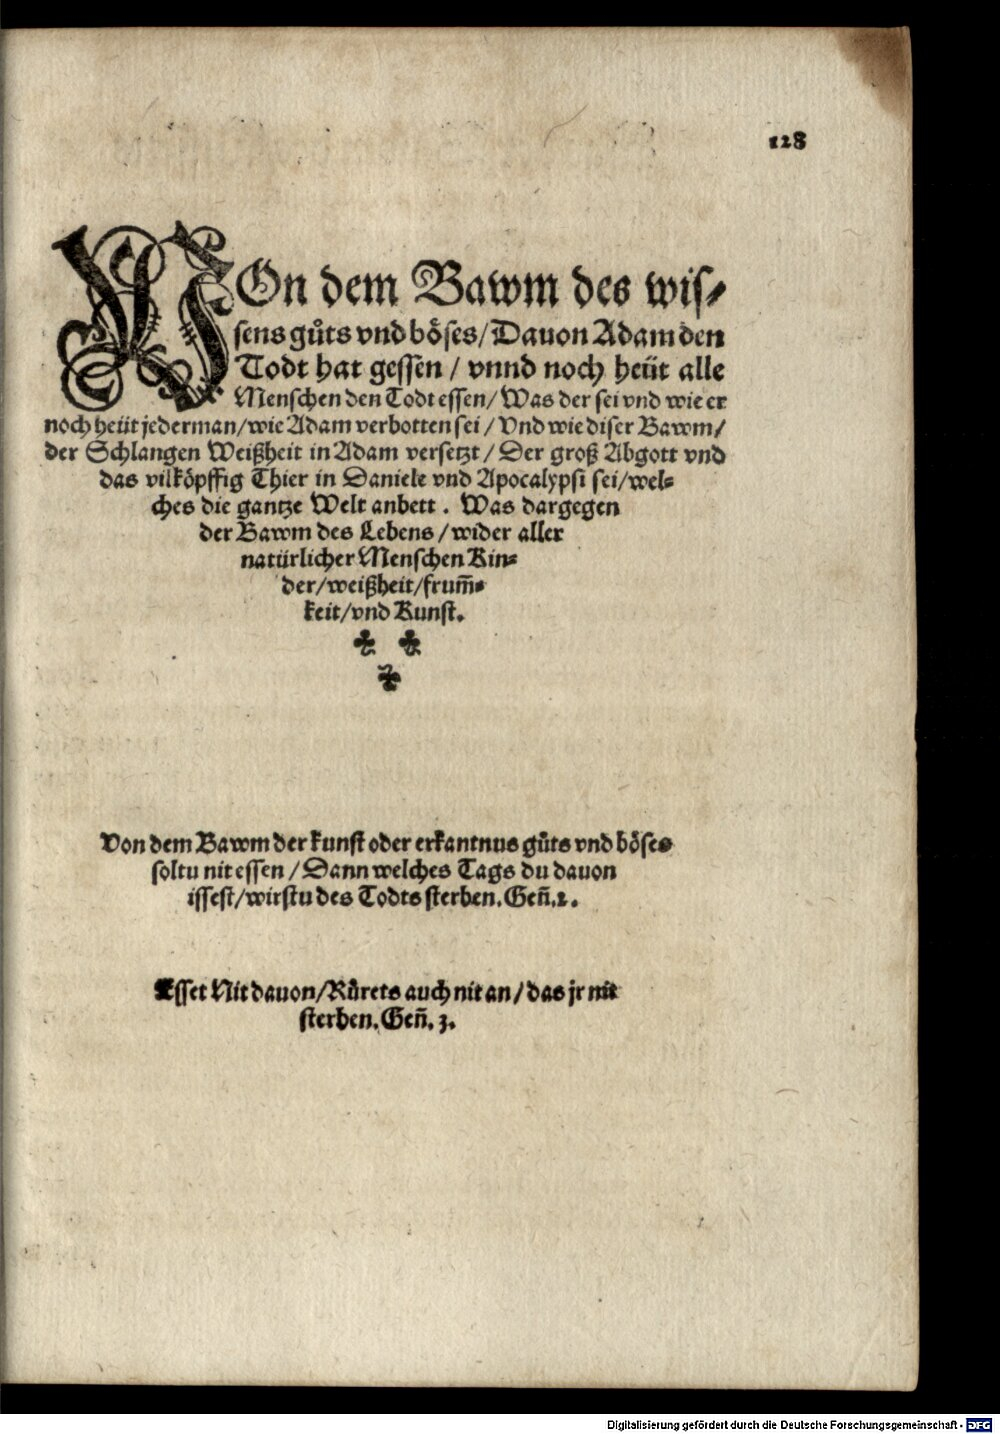 128
VOn dem Bawm des wis⸗
sens gůts vnd böses/Dauon Adam den
Todt hat gessen / vnnd noch heüt alle
Menschen den Todt essen/ Was der sei vnd wie er
noch heüt jederman/wie Adam verbotten sei / Vnd wie diser Bawm/
der Schlangen Weißheit in Adam versetzt / Der groß Abgott vnd
das vilköpffig Thier in Daniele vnd Apocalypsi sei/wel⸗
ches die gantze Welt anbett . Was dargegen
der Bawm des Lebens / wider aller
natürlicher Menschen Kin⸗
der/weißheit/frum̃⸗
keit/vnd Kunst.
Von dem Bawm der kunst oder erkantnus gůts vnd böses
soltu nit essen / Dann welches Tags du dauon
issest/wirstu des Todts sterben. Geñ.2.
Esset Nit dauon/Růrets auch nit an / das jr nit
sterben. Geñ. 3.
Digitalisierung gefördert durch die Deutsche Forschungsgemeinschaft - DFG